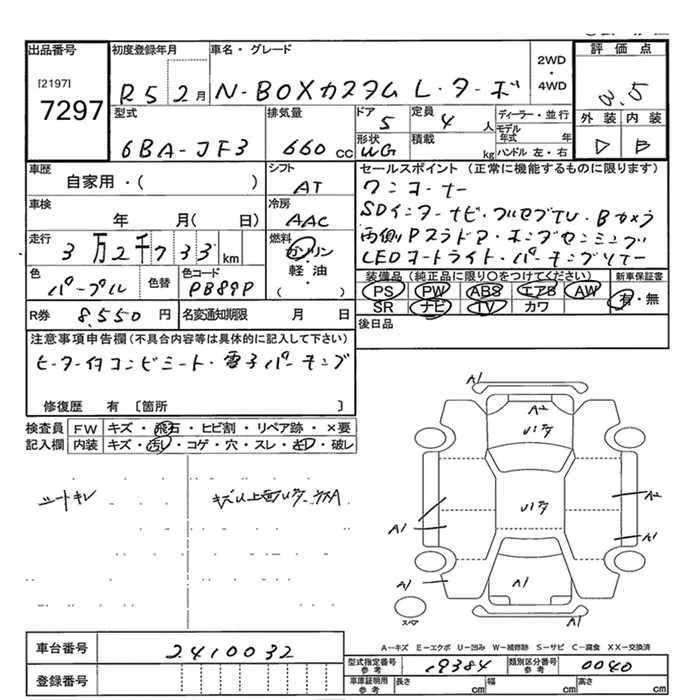 出品番号 初度登録年月 車名・グレード 2WD・4WD 評価点
[2197]
7297 R5 2月 N-BOXカスタム L・ターボ 3.5
型式 排気量 ドア 定員 ディーラー・並行 外装 内装
6BA-JF3 660cc 5 4人 モデル年式 年
形状 積載 ハンドル 左・右
WG kg
車歴 シフト セールスポイント(正常に機能するものに限ります)
自家用・( ) AT ワンオーナー
車検 冷房 SDインターナビ・フルセグTV・Bカメラ
年 月( 日) AAC 両側Pスラドア・ホンダセンシング
走行 燃料 LEDヘッドライト・
3万2千733km ガソリン・軽・油( )
色 色替 色コード 装備品(純正品に限り○をつけてください) 新車保証書
パープル PB89P PS PW ABS エアB AW 有・無
SR ナビ TV カワ
R券 8,550円 名変通知期限 月 日 後日品
注意事項申告欄(不具合内容等は具体的に記入して下さい)
ヒーター付コンビシート・電子パーキング
修復歴 有 〔箇所 〕
検査員記入欄 FW キズ・飛石・ヒビ割・リペア跡・×要
内装 キズ・汚レ・コゲ・穴・スレ・キレ・破レ
シートキレ
A1
A2
A1
A2
A1
A1
A1
A1
A1
スペア
A-キズ E-エクボ U-凹み W-補修跡 S-サビ C-腐食 XX-交換済
車台番号 2410032
型式指定番号参考 19384 類別区分番号参考 0040
登録番号
車庫証明用参考 長さ cm 幅 cm 高さ cm